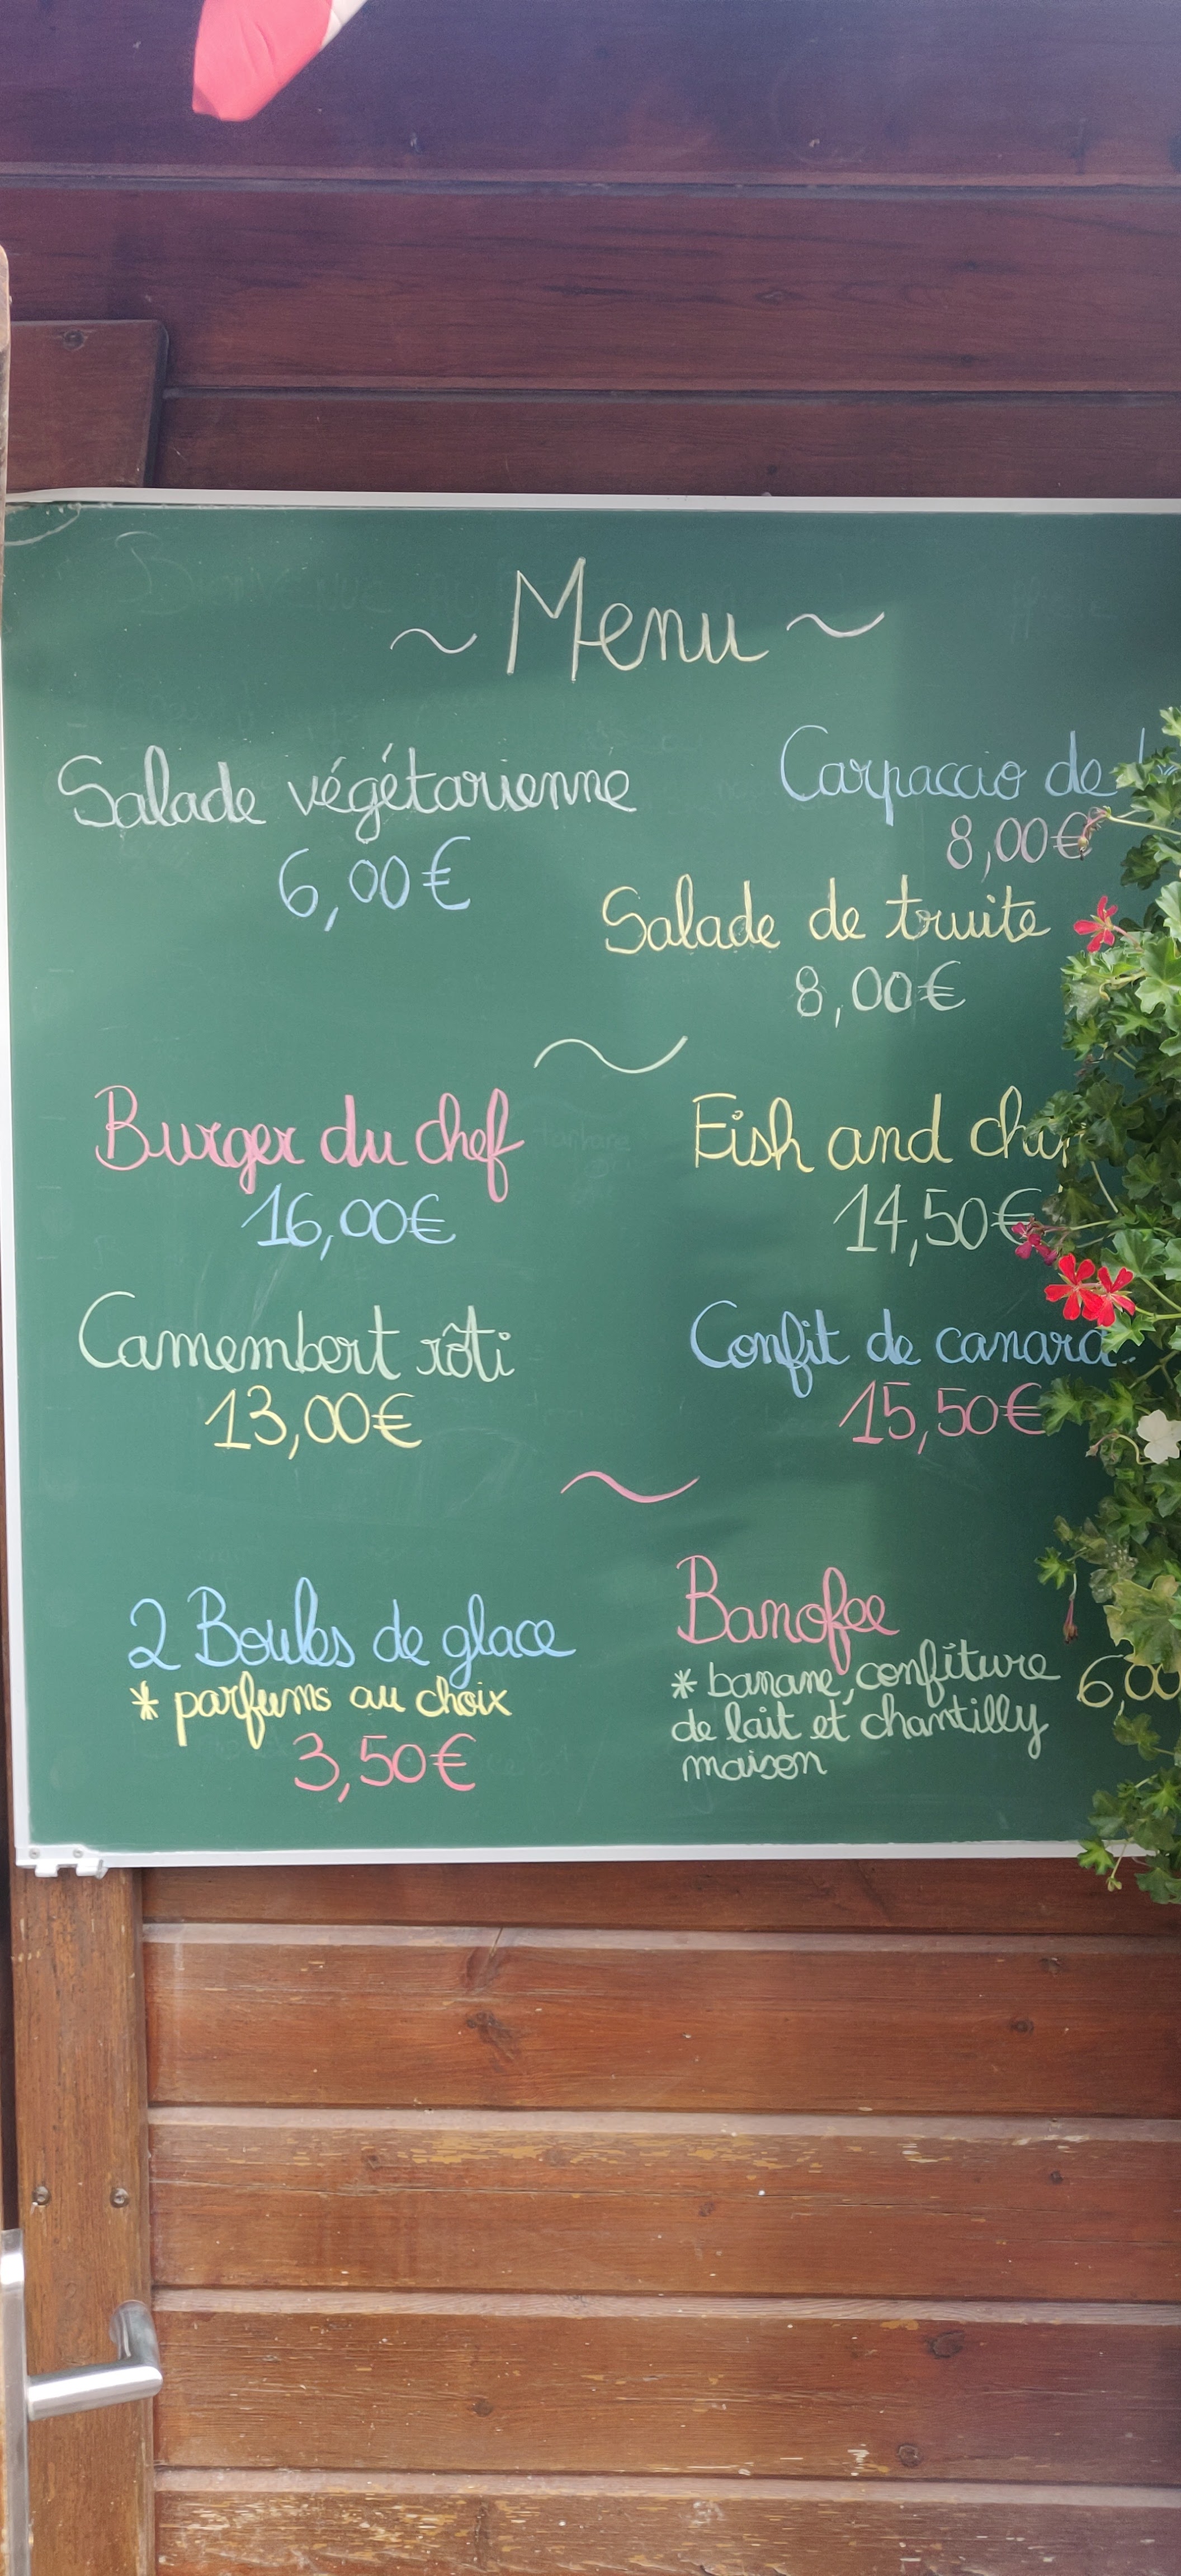 ~ Menu ~
Salade végétarienne
6,00€
Carpaccio de
8,00€
Salade de truite
8,00€
~
Burger du chef
16,00€
Fish and
14,50€
Camembert rôti
13,00€
Confit de canard
15,50€
~
2 Boules de glace
* parfums au choix
3,50€
Banofee
* banane, confiture
de lait et chantilly
maison
6,00